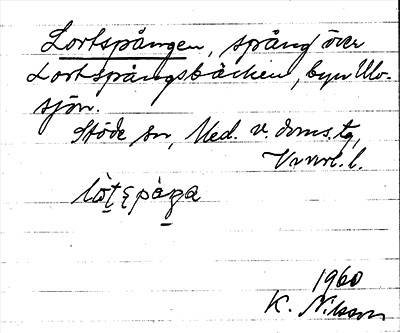 Lortspången, spång över
Lortspångsbäcken, byn Ulv-
sjön.
Stöde sn, Med. v. doms.tg,
Vnrrl. l.
1960
K. Nilsson